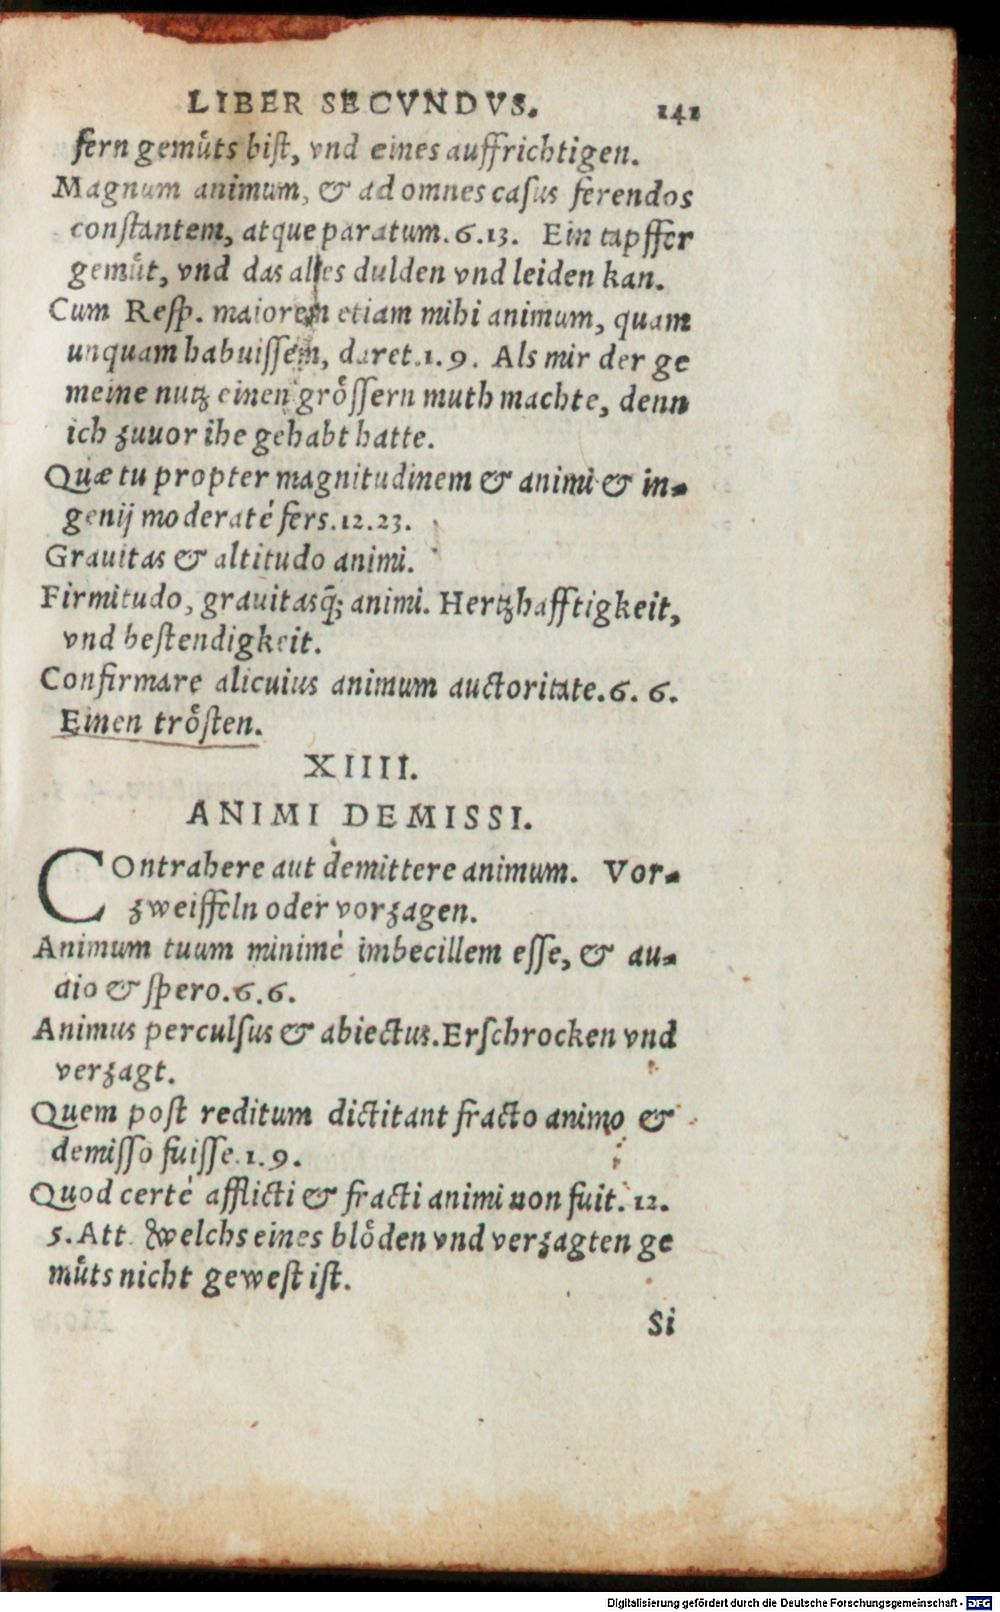 LIBER SECVNDVS. 141
fern gemuͤts biſt, vnd eines auffrichtigen.
Magnum animum, & ad omnes caſus ferendos
conſtantem, atque paratum. 6. 13. Ein tapffer
gemuͤt, vnd das alles dulden vnd leiden kan.
Cum Reſp. maiorem etiam mihi animum, quam
unquam habuiſſem, daret. 1. 9. Als mir der ge
meine nutz einen groͤſſern muth machte, denn
ich zuuor ihe gehabt hatte.
Quæ tu propter magnitudinem & animi & in-
genij moderaté fers. 12. 23.
Grauitas & altitudo animi.
Firmitudo, grauitasq̃; animi. Hertzhafftigkeit,
vnd beſtendigkeit.
Confirmare alicuius animum auctoritate. 6. 6.
Einen troͤſten.
XIIII.
ANIMI DEMISSI.
COntrahere aut demittere animum. Vor-
zweiffeln oder vorzagen.
Animum tuum minimé imbecillem eſſe, & au-
dio & ſpero. 6. 6.
Animus perculſus & abiectus. Erſchrocken vnd
verzagt.
Quem poſt reditum dictitant fracto animo &
demiſſo fuiſſe. 1. 9.
Quod certé afflicti & fracti animi non fuit. 12.
5. Att. welchs eines bloͤden vnd verzagten ge
muͤts nicht geweſt iſt.
Si
Digitalisierung gefördert durch die Deutsche Forschungsgemeinschaft - DFG